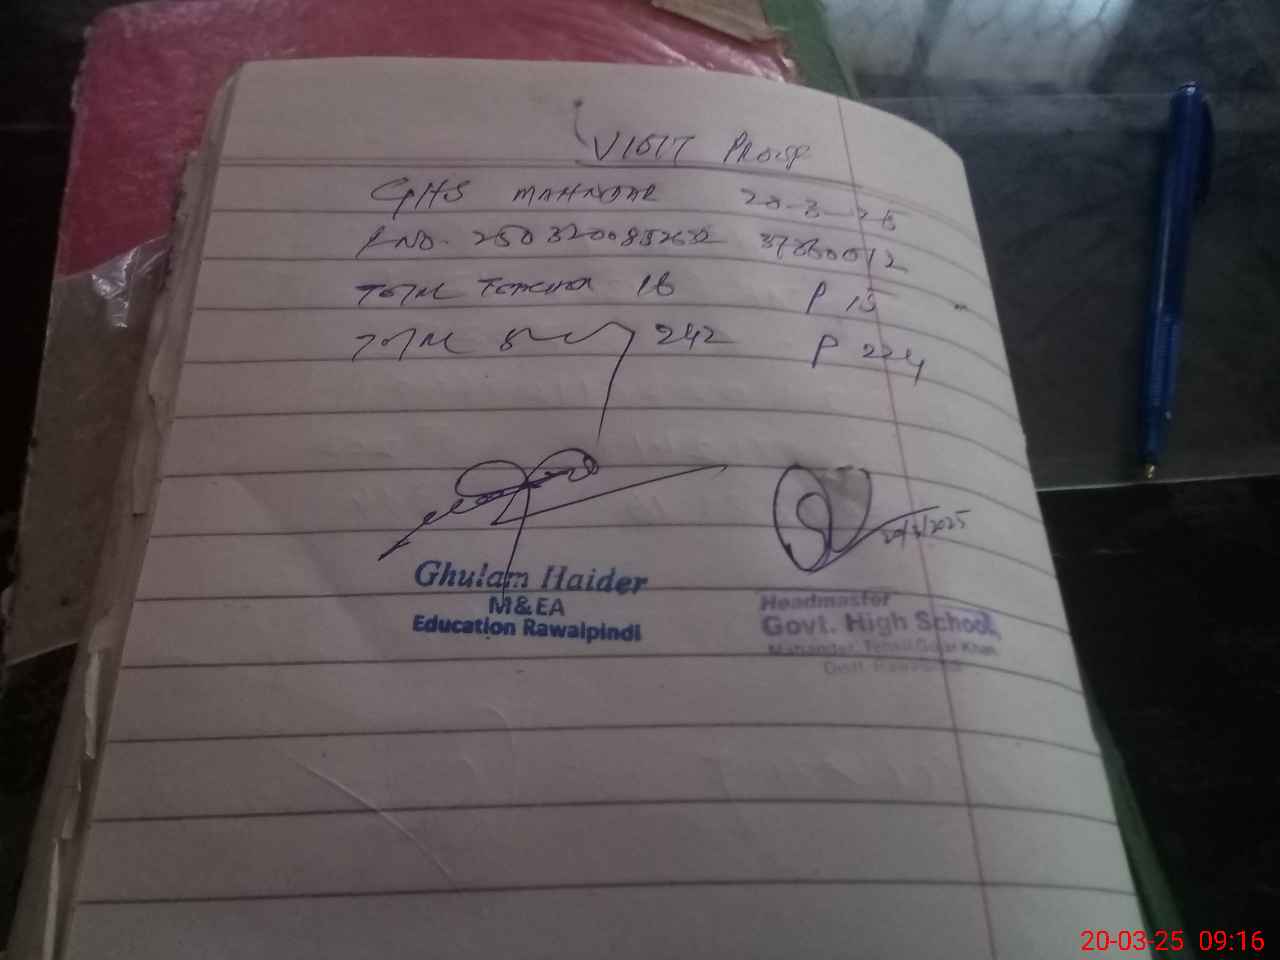 VISIT PROOF
GHS MAHNDAR 20-3-25
R NO. 2503200852632 37360012
TOTAL TEACHER 16 P 15
TOTAL 242 P 224
20/3/2025
Ghulam Haider
M&EA
Education Rawalpindi
Headmaster
Govt. High School,
Mahander, Tehsil Gujar Khan
Distt. Rawalpindi
20-03-25 09:16